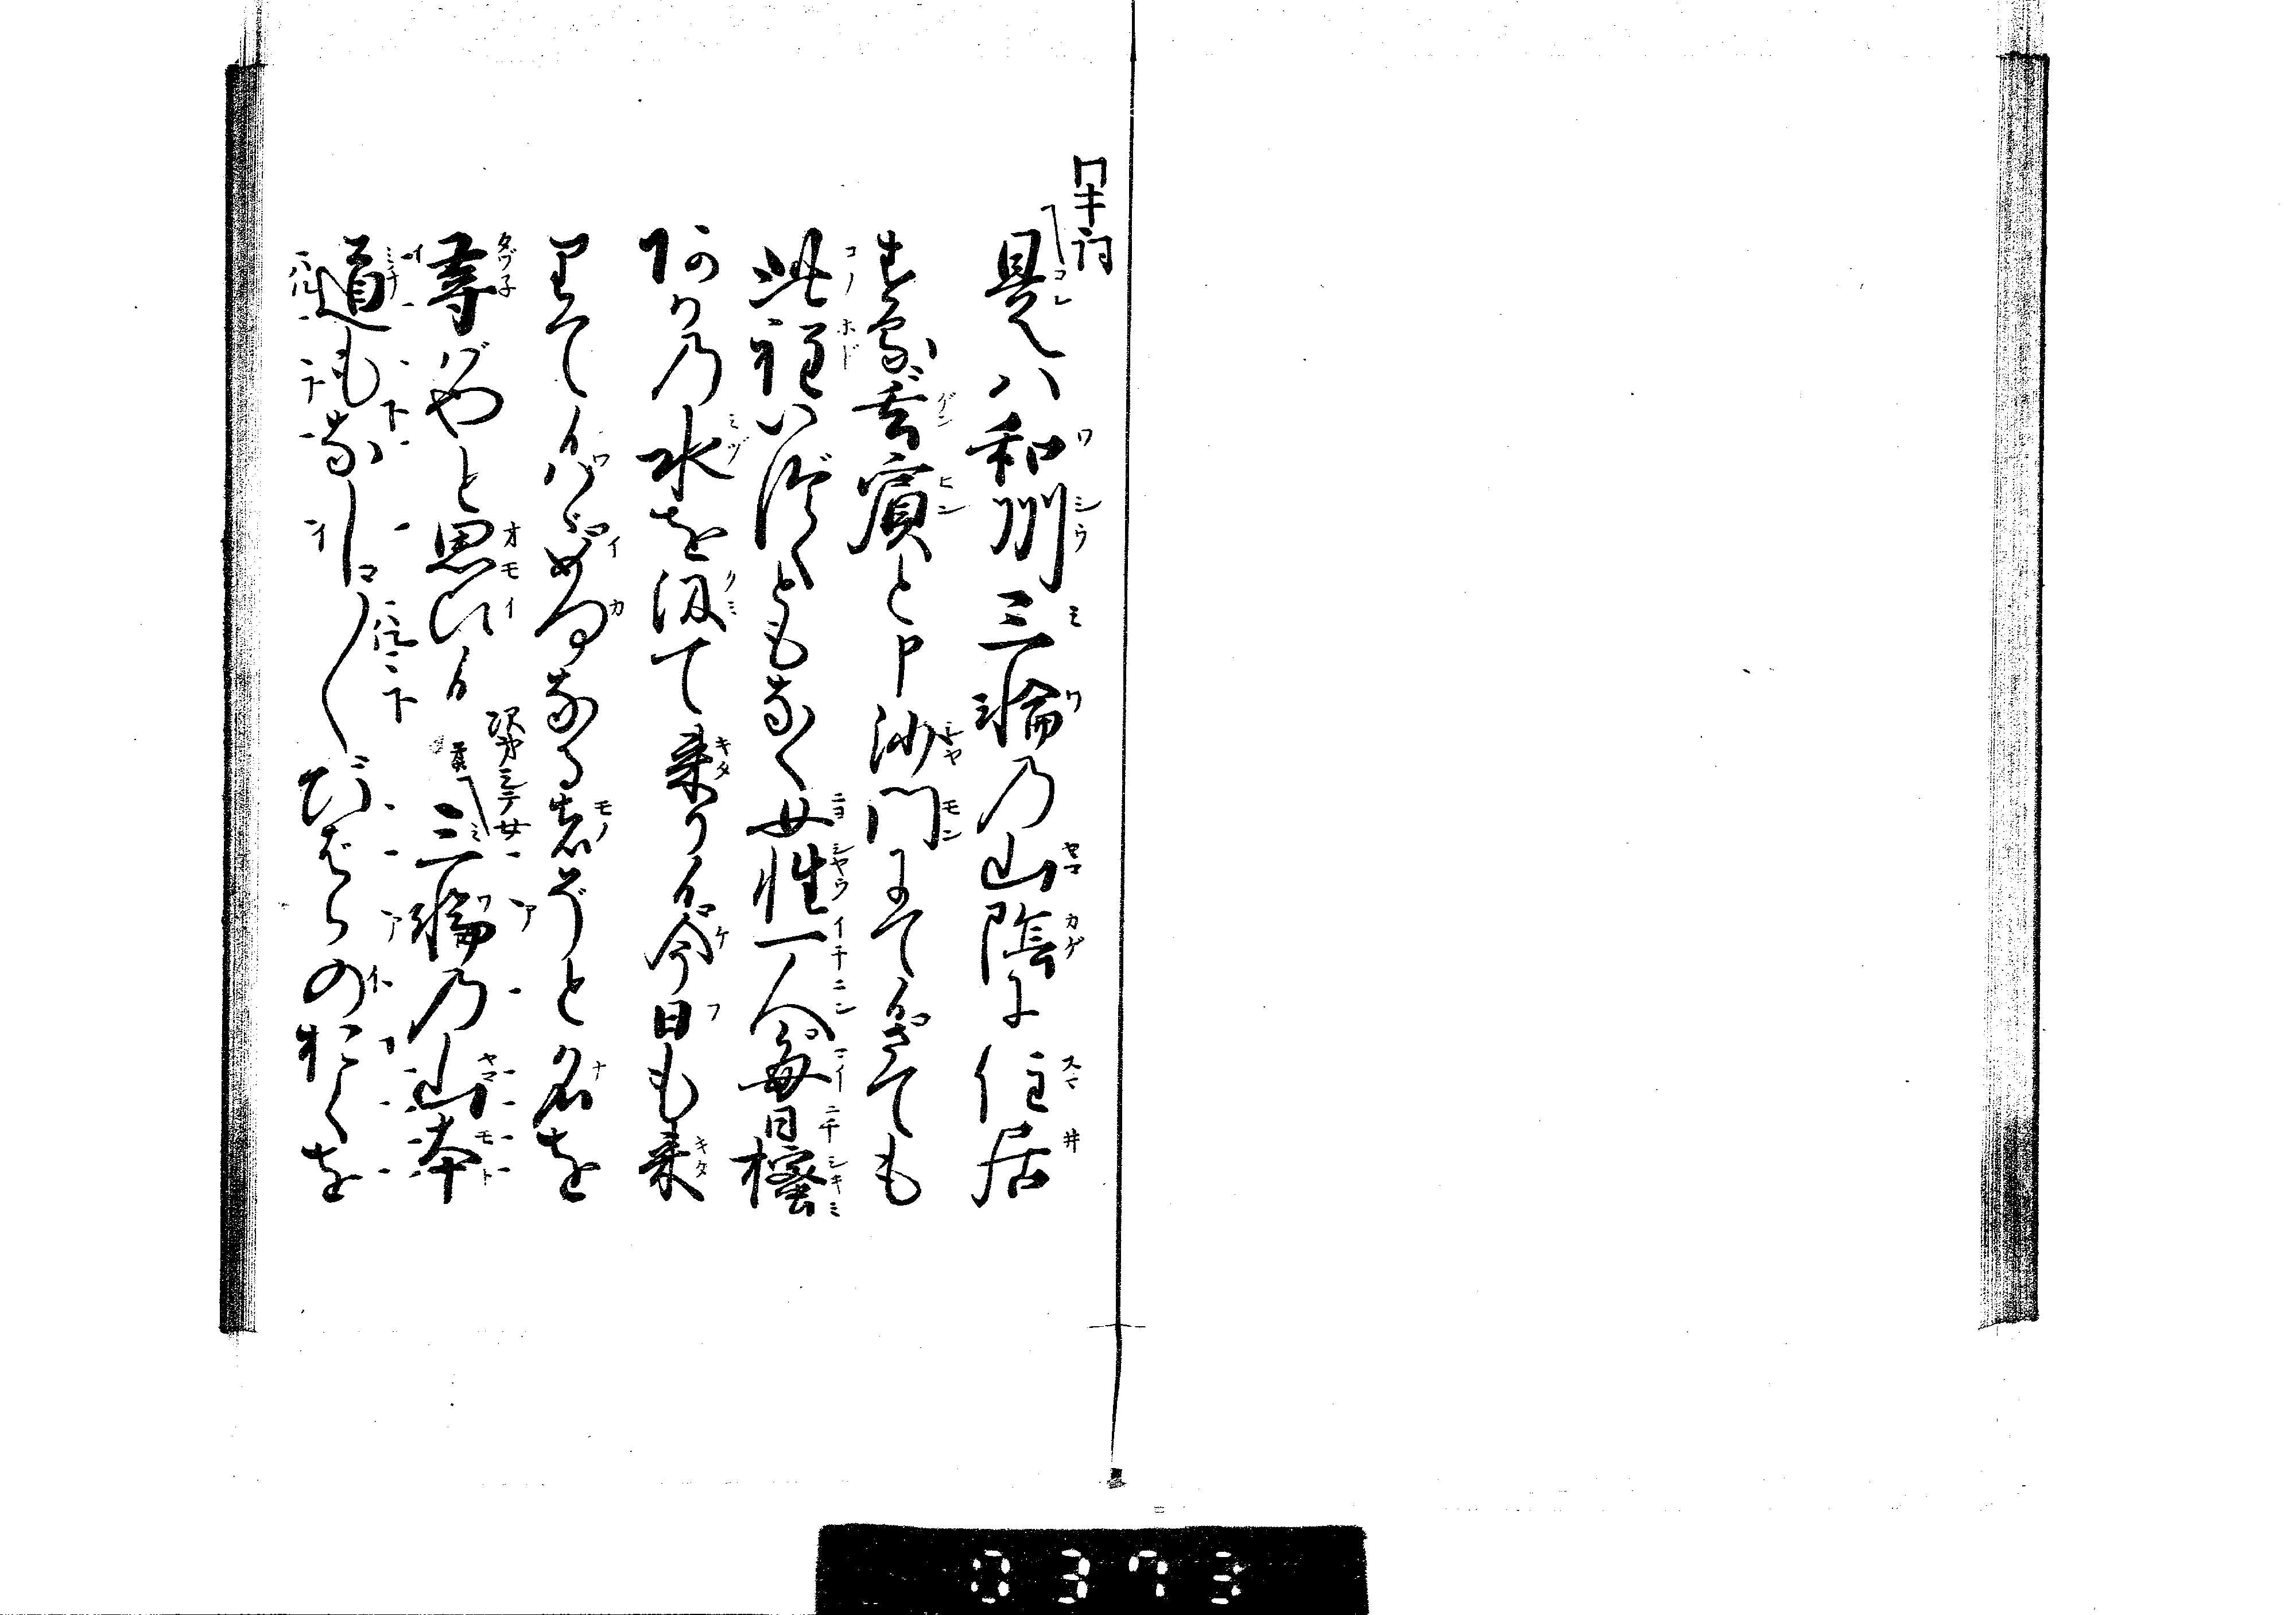 ワキ詞
是ハ和州三輪乃山陰に住居
する玄賓と申沙門にて候さても
此程いづくともなく女性一人毎日樒
閼伽乃水を汲て来り候今日も来
りて候はゞ如何なる者ぞと名を
尋ばやと思ひ候 次第シテ女 三輪乃山本
道もなし〳〵ひばらのおくを
0373